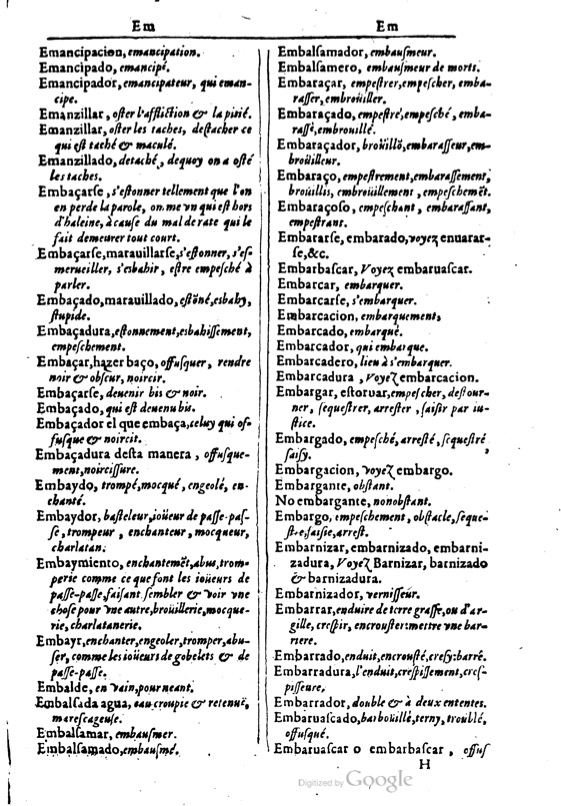 Em
Em
Emancipacion, emancipation.
Emancipado, emancipé.
Emancipador, emancipateur, qui eman-
cipe.
Emanzillar, oster l'affliction & la pitié.
Emanzillar, oster les taches, destacher ce
qui est taché & maculé.
Emanzillado, detaché, dequoy on a osté
les taches.
Embaçarse, s'estonner tellement que l'on
en perde la parole, on me vn qui est hors
d'haleine, à cause du mal de rate qui le
fait demeurer tout court.
Embaçarse, marauillarse, s'estonner, s'es-
merueiller, s'esbahir, estre empesché à
parler.
Embaçado, marauillado, estōné, esbahy,
stupide.
Embaçadura, estonnement, esbahissement,
empeschement.
Embaçar, hazer baço, offusquer, rendre
noir & obscur, noircir.
Embaçarse, deuenir bis & noir.
Embaçado, qui est deuenu bis.
Embaçador el que embaça, celuy qui of-
fusque & noircit.
Embaçadura desta manera, offusque-
ment, noircissure.
Embaydo, trompé, mocqué, engeolé, en-
chanté.
Embaydor, basteleur, ioüeur de passe-pas-
se, trompeur, enchanteur, mocqueur,
charlatan.
Embaymiento, enchantemēt, abus, trom-
perie comme ce que font les ioüeurs de
passe-passe, faisant sembler & voir vne
chose pour vne autre, broüillerie, mocque-
rie, charlatanerie.
Embayr, enchanter, engeoler, tromper, abu-
ser, comme les ioüeurs de gobelets & de
passe-passe.
Embalde, en vain, pour neant.
Embalsada agua, eau croupie & retenuë,
marescageuse.
Embalsamar, embausmer.
Embalsamado, embausmé.
Embalsamador, embausmeur.
Embalsamero, embausmeur de morts.
Embaraçar, empestrer, empescher, emba-
rasser, embroüiller.
Embaraçado, empestré, empesché, emba-
rassé, embrouillé.
Embaraçador, broüillō, embarasseur, em-
broüilleur.
Embaraço, empestrement, embarassement,
broüillis, embroüillement, empeschemēt.
Embaraçoso, empeschant, embarassant,
empestrant.
Embararse, embarado, voyez enuarar-
se, &c.
Embarbascar, Voyez embaruascar.
Embarcar, embarquer.
Embarcarse, s'embarquer.
Embarcacion, embarquement,
Embarcado, embarqué.
Embarcador, qui embarque.
Embarcadero, lieu à s'embarquer.
Embarcadura, Voyez embarcacion.
Embargar, estoruar, empescher, destour-
ner, sequestrer, arrester, saisir par iu-
stice.
Embargado, empesché, arresté, sequestré
saisy.
Embargacion, voyez embargo.
Embargante, obstant.
No embargante, nonobstant.
Embargo, empeschement, obstacle, seque-
stre, saisie, arrest.
Embarnizar, embarnizado, embarni-
zadura, Voyez Barnizar, barnizado
& barnizadura.
Embarnizador, vernisseur.
Embarrar, enduire de terre grasse, ou d'ar-
gille, crespir, encrouster: mettre vne bar-
riere.
Embarrado, enduit, encrousté, crespy: barré.
Embarradura, l'enduit, crespissement, cres-
pissure,
Embarrador, double & à deux ententes.
Embaruascado, barboüillé, terny, troublé,
offusqué.
Embaruascar o embarbascar, offus
H
Digitized by Google